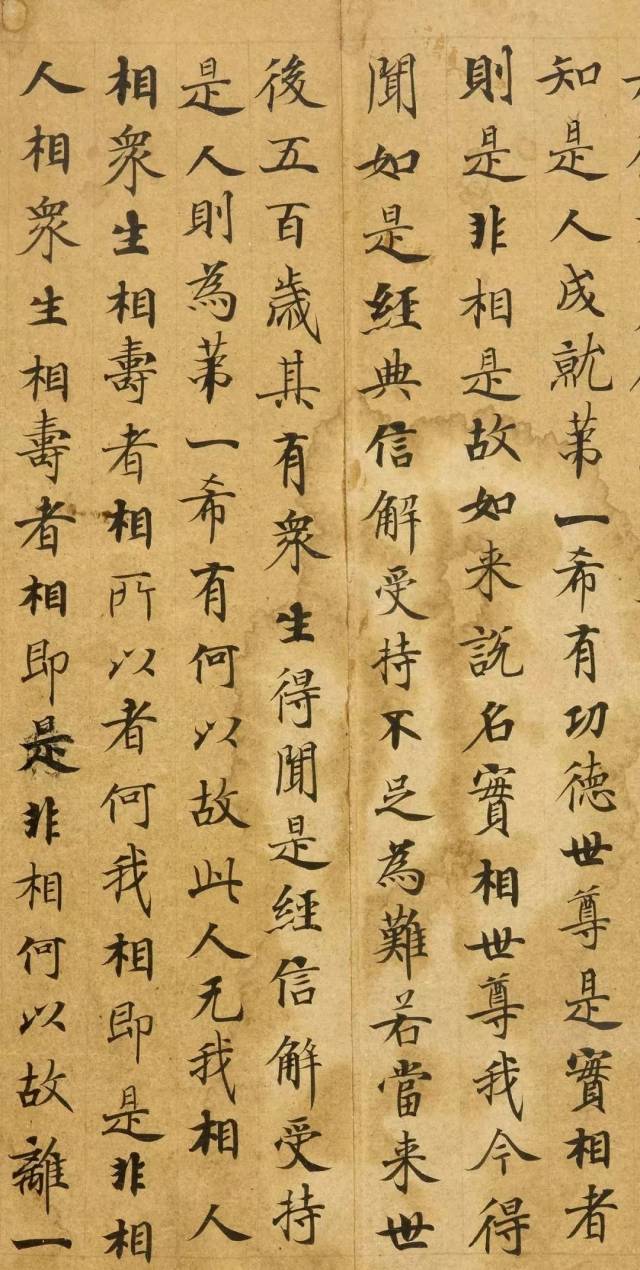 知是人成就苐一希有功徳世尊是實相者
則是非相是故如来說名實相世尊我今得
聞如是經典信解受持不足為難若當来世
後五百歳其有衆生得聞是經信解受持
是人則為苐一希有何以故此人无我相人
相衆生相壽者相所以者何我相即是非相
人相衆生相壽者相即是非相何以故離一